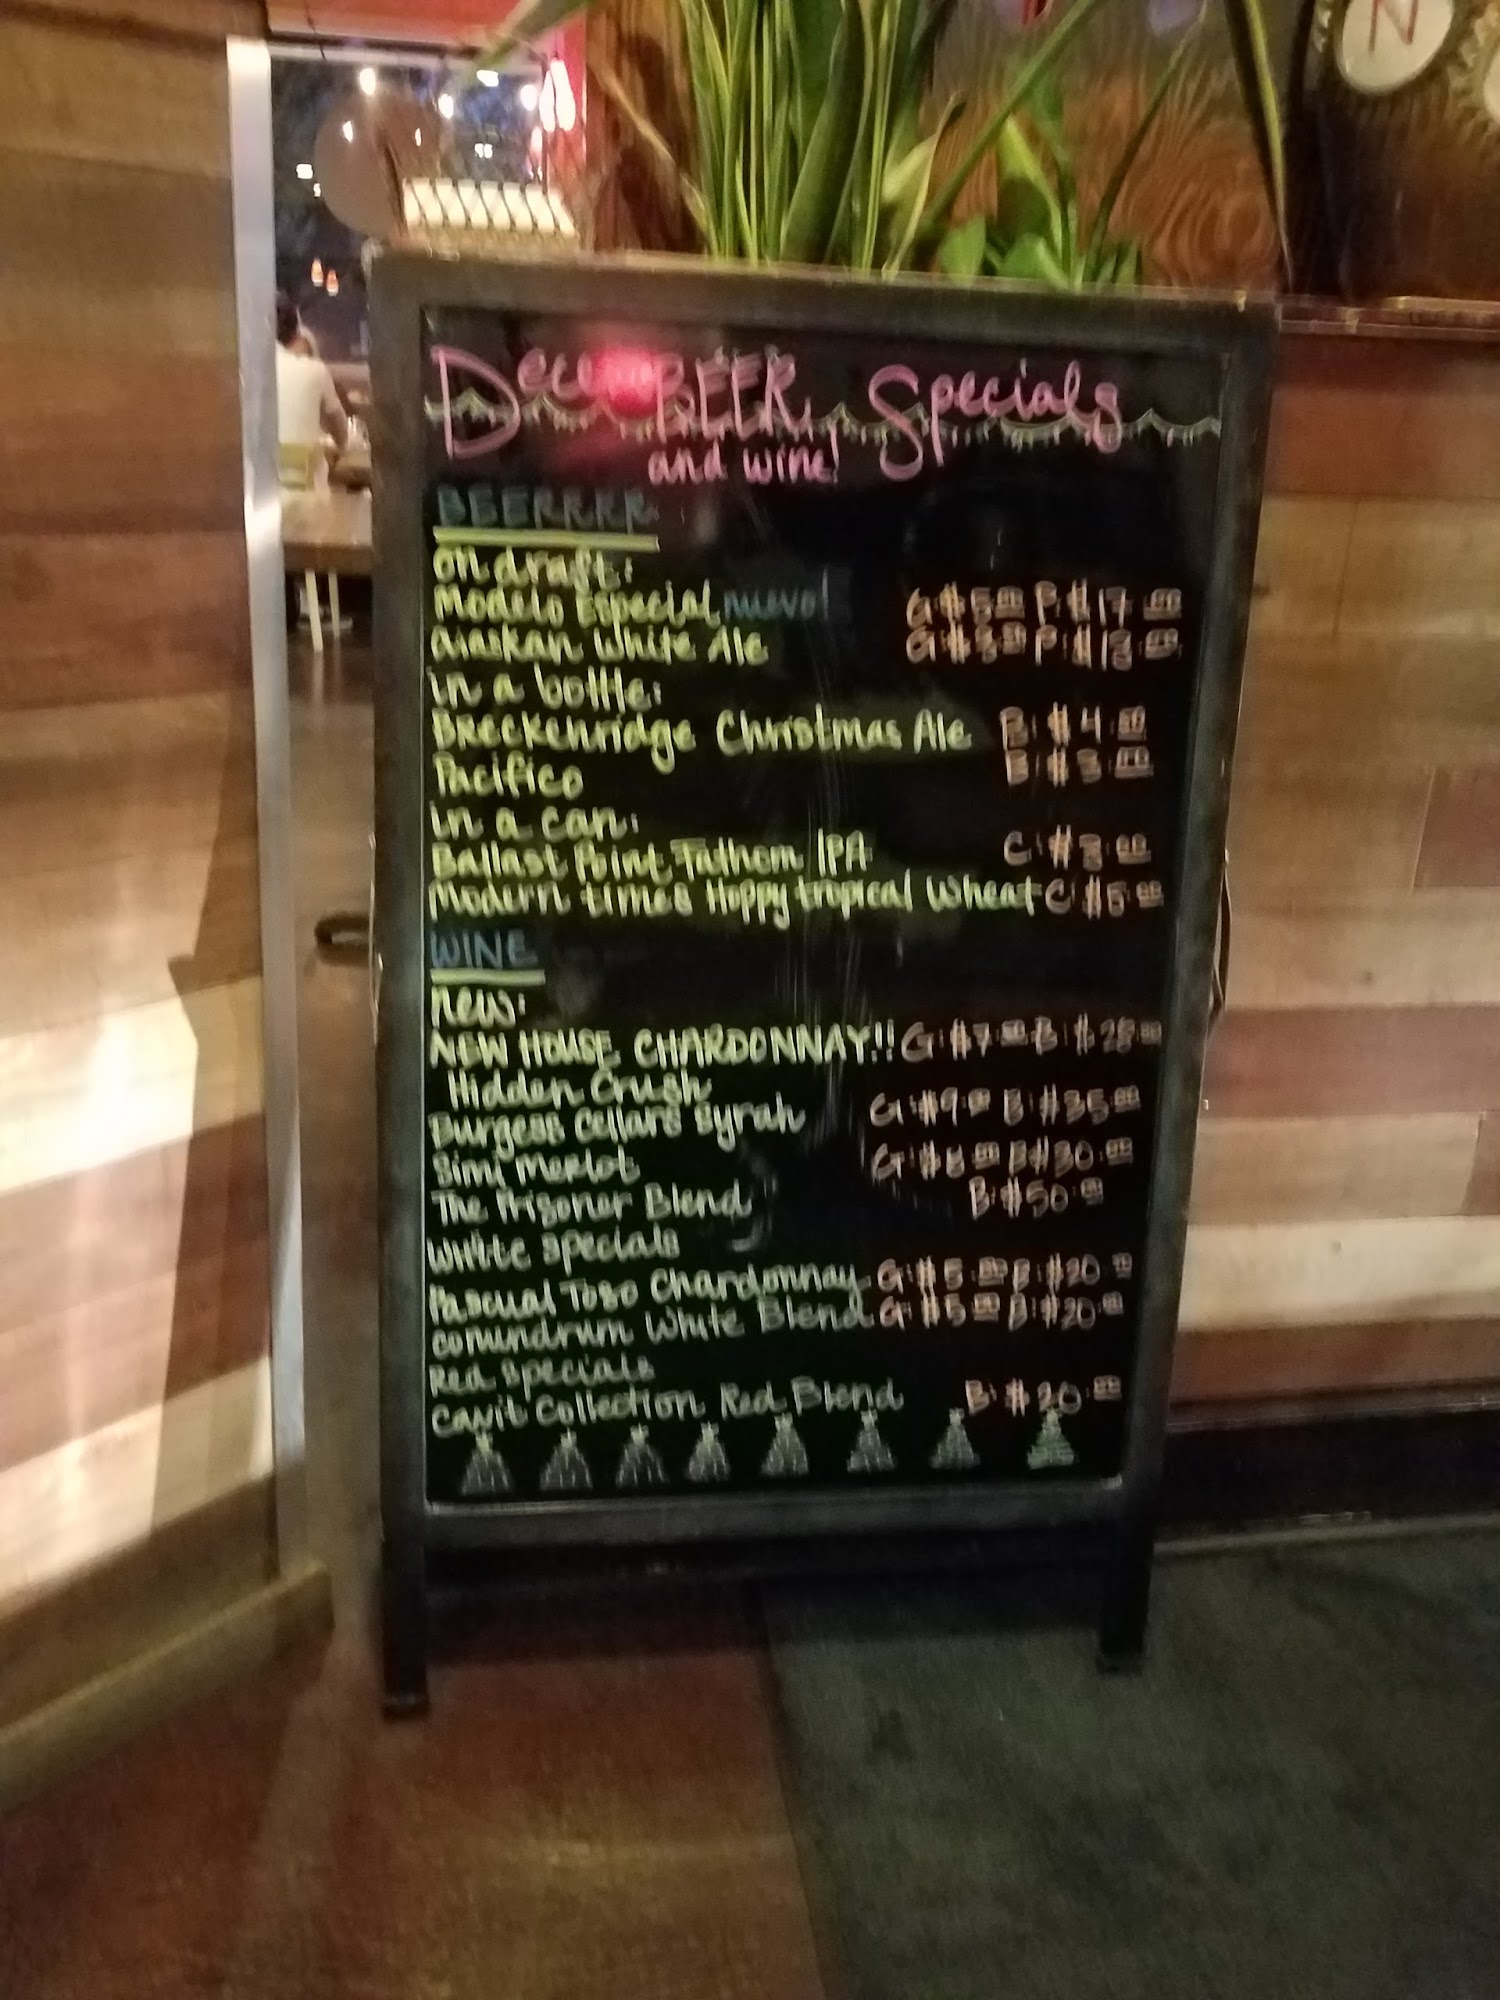 DecemBEER Specials
and wine!
BEERRRR
on draft:
Modelo Especial nuevo! G: $5.00 P: $17.00
Alaskan White Ale G: $3.00 P: $
in a bottle:
Breckenridge Christmas Ale B: $4.00
Pacifico B: $3.00
in a can:
Ballast Point Fathom IPA C: $3.00
Modern times Hoppy tropical Wheat C: $5.00
WINE
New:
NEW HOUSE CHARDONNAY!! G: $7.00 B: $28.00
Hidden Crush
Burgess Cellars Syrah G: $9.00 B: $35.00
Simi Merlot G: $8.00 B: $30.00
The Prisoner Blend B: $50.00
White specials
Pascual Toso Chardonnay G: $5.00 B: $20.00
Conundrum White Blend G: $5.00 B: $20.00
Red specials
Cavit Collection Red Blend B: $20.00
N